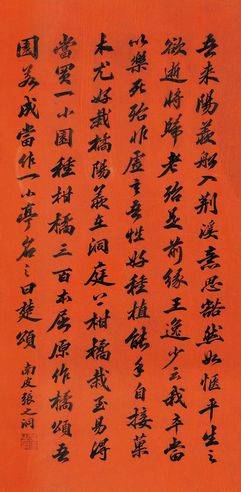 吾來陽羨船入荆溪意思豁然如愜平生之
欲逝將歸老殆是前緣王逸少云我卒當
以樂死殆非虛言吾性好種植能手自接菓
木尤好栽橘陽羨在洞庭上柑橘栽至易得
當買一小園種柑橘三百本屈原作橘頌吾
園若成當作一小亭名之曰楚頌
南皮張之洞